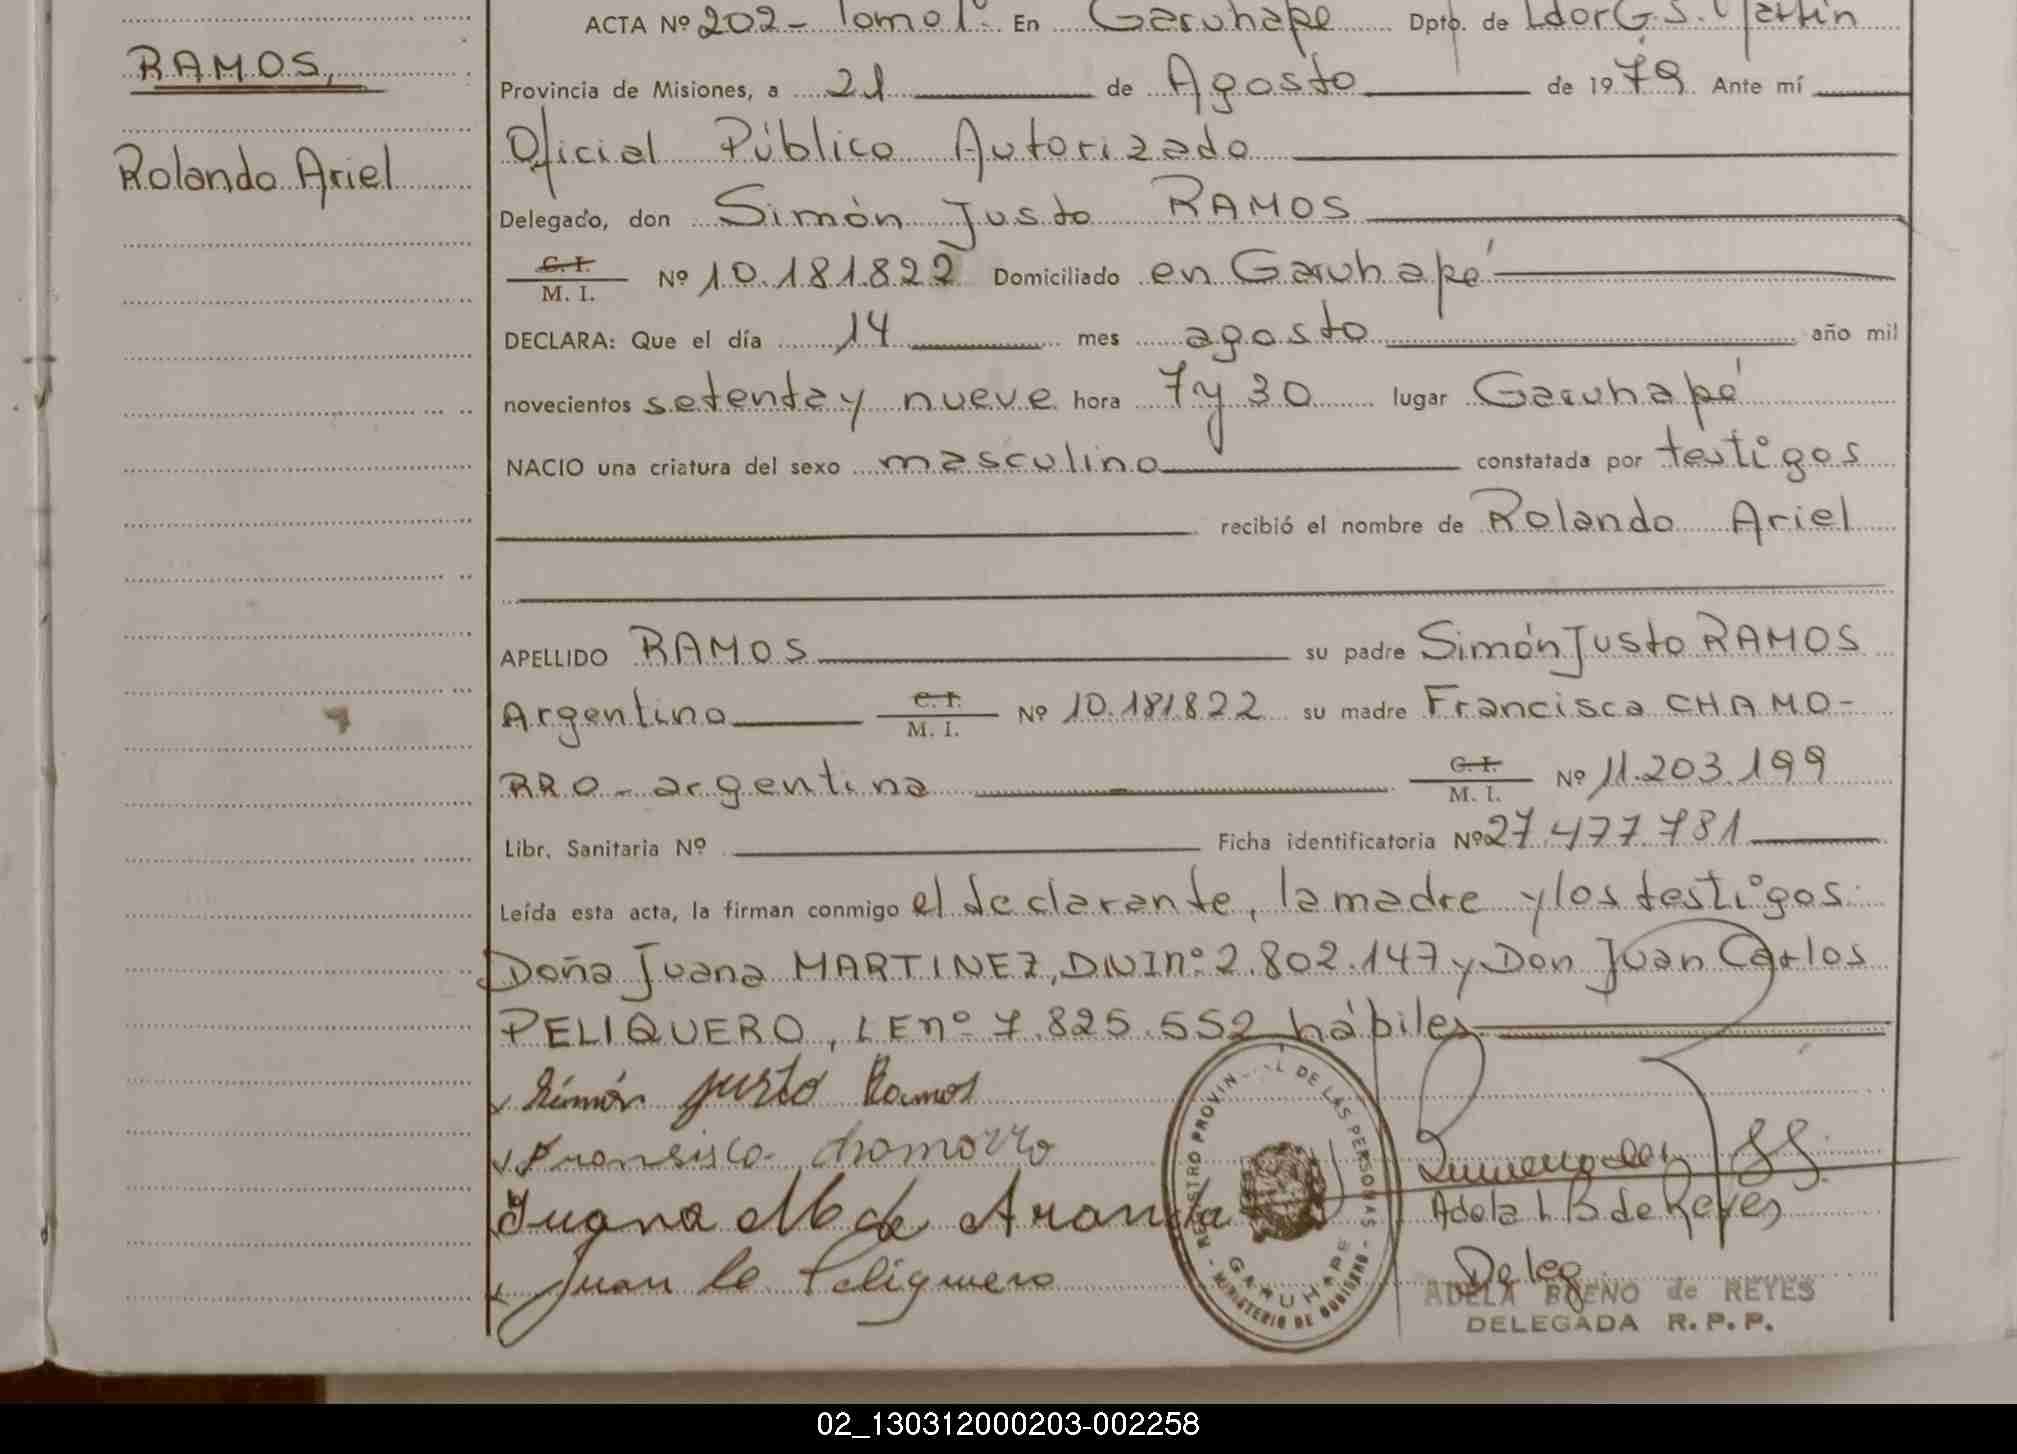 ACTA Nº 202- Tomo 1º En Garuhape Dpto. de Ldor G.S. Martín
RAMOS,
Provincia de Misiones, a 21 de Agosto de 1979 Ante mí
Oficial Público Autorizado
Rolando Ariel
Delegado, don Simón Justo RAMOS
C.I.
M. I. Nº 10.181.822 Domiciliado en Garuhapé
DECLARA: Que el día 14 mes agosto año mil
novecientos setenta y nueve hora 7 y 30 lugar Garuhapé
NACIO una criatura del sexo masculino constatada por testigos
recibió el nombre de Rolando Ariel
APELLIDO RAMOS su padre Simón Justo RAMOS
Argentino C.I. M. I. Nº 10.181822 su madre Francisca CHAMO-
RRO - argentina C.I. M. I. Nº 11.203.199
Libr. Sanitaria Nº Ficha identificatoria Nº 27.477.781
Leída esta acta, la firman conmigo el declarante, la madre y los testigos:
Doña Juana MARTINEZ, DNI nº 2.802.147 y Don Juan Carlos
PELIQUERO, LE nº 7.825.552 hábiles
Simón justo Ramos
Fransisca chamorro
Juana M de Aranda
Juan Ca Peliquero
REGISTRO PROVINCIAL DE LAS PERSONAS
GARUHAPE
MINISTERIO DE GOBIERNO
Adela L B de Reyes
Deleg
ADELA BUENO de REYES
DELEGADA R. P. P.
02_130312000203-002258